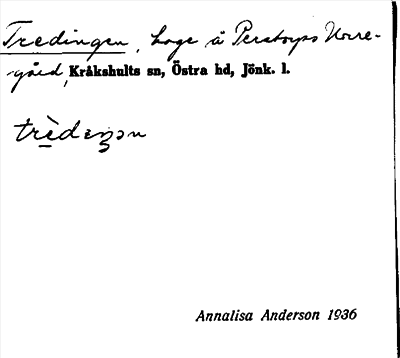 Tredingen, hage å Perstorps Norre-
gård, Kråkshults sn, Östra hd, Jönk. l.
Annalisa Anderson 1936